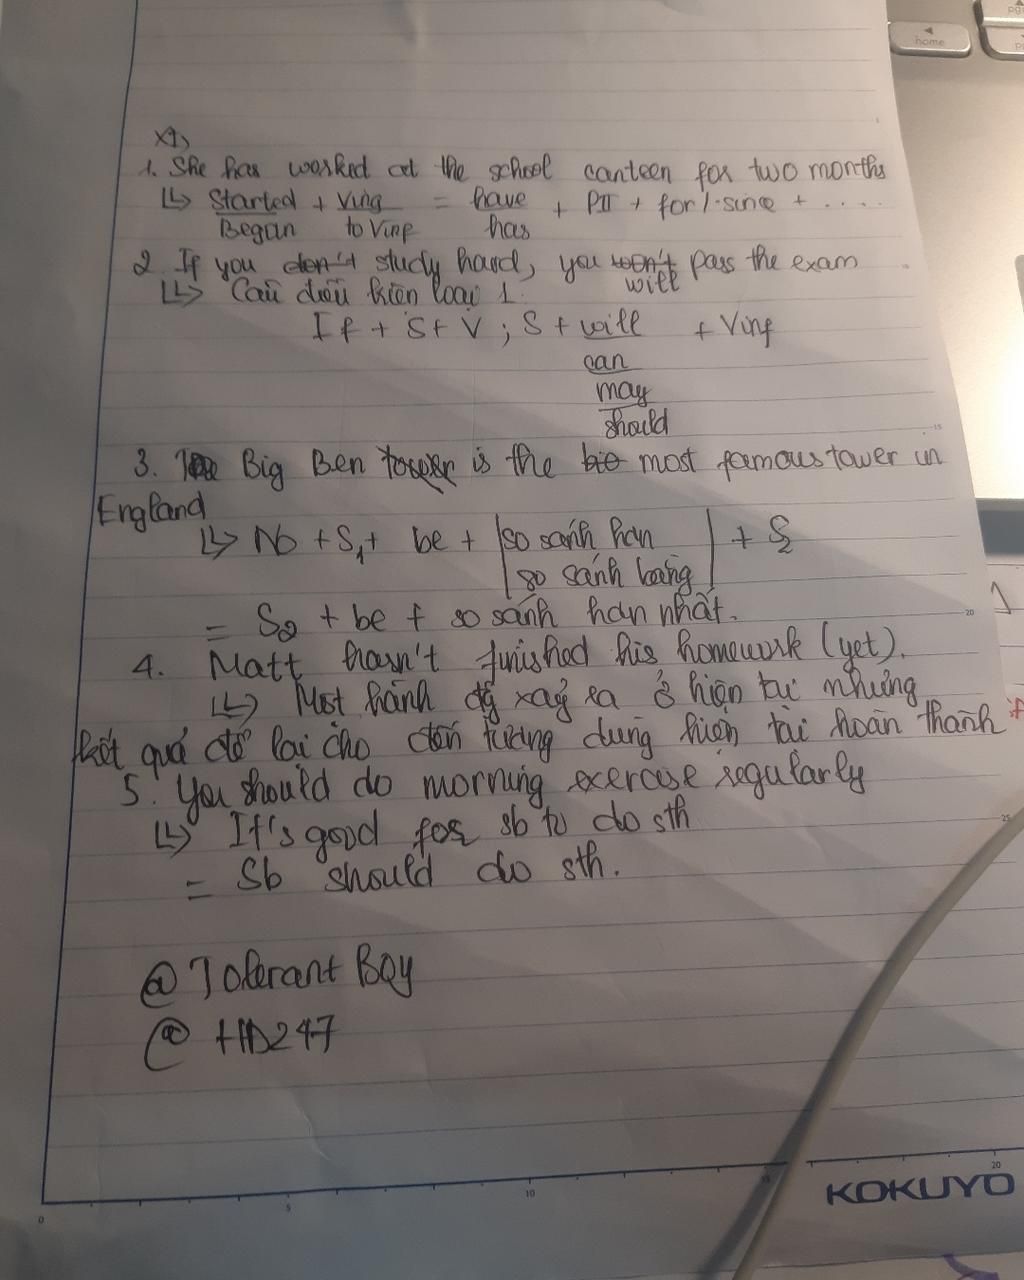 home
XI)
1. She has worked at the school canteen for two months
↳ Started + Ving = have + PII + for/since + ....
Began to Ving has
2. If you don't study hard, you won't pass the exam
will
↳ Câu điều kiện loại 1.
If + S + V ; S + will + Ving
can
may
should
3. The Big Ben tower is the most famous tower in
England
↳ No + S1 + be + | so sánh hơn | + S2
| so sánh bằng |
= S2 + be + so sánh hơn nhất.
4. Matt hasn't finished his homework (yet).
↳ Một hành độg xảy ra ở hiện tại nhưng
kết quả để lại cho đến tương dùng hiện tại hoàn thành
5. You should do morning exercise regularly
↳ It's good for sb to do sth
= Sb should do sth.
@ Tolerant Boy
@ HD247
15
20
25
0 5 10 15 20
KOKUYO